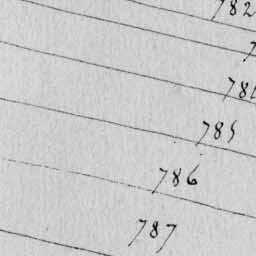 782
785
786
787